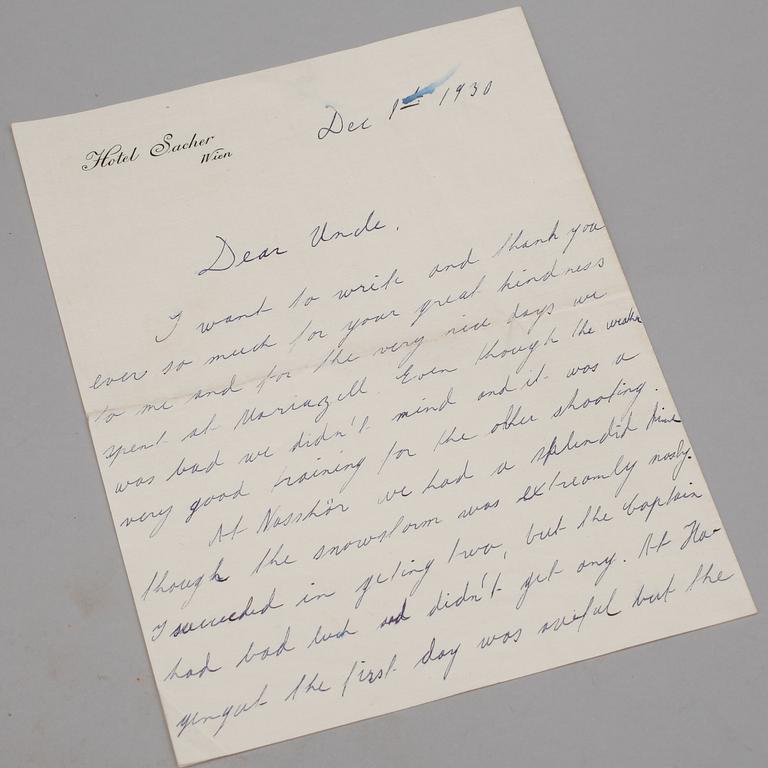 Hotel Sacher
Wien
Dec 1st 1930
Dear Uncle,
I want to write and thank you
ever so much for your great kindness
to me and for the very nice days we
spent at Mariazell. Even though the weather
was bad we didn't mind and it was a
very good training for the other shooting.
At Nasshör we had a splendid time
though the snowstorm was extreamly nasty.
I succeeded in geting two, but the Captain
had bad luck and didn't get any. At Ha-
yengut the first day was aweful but the